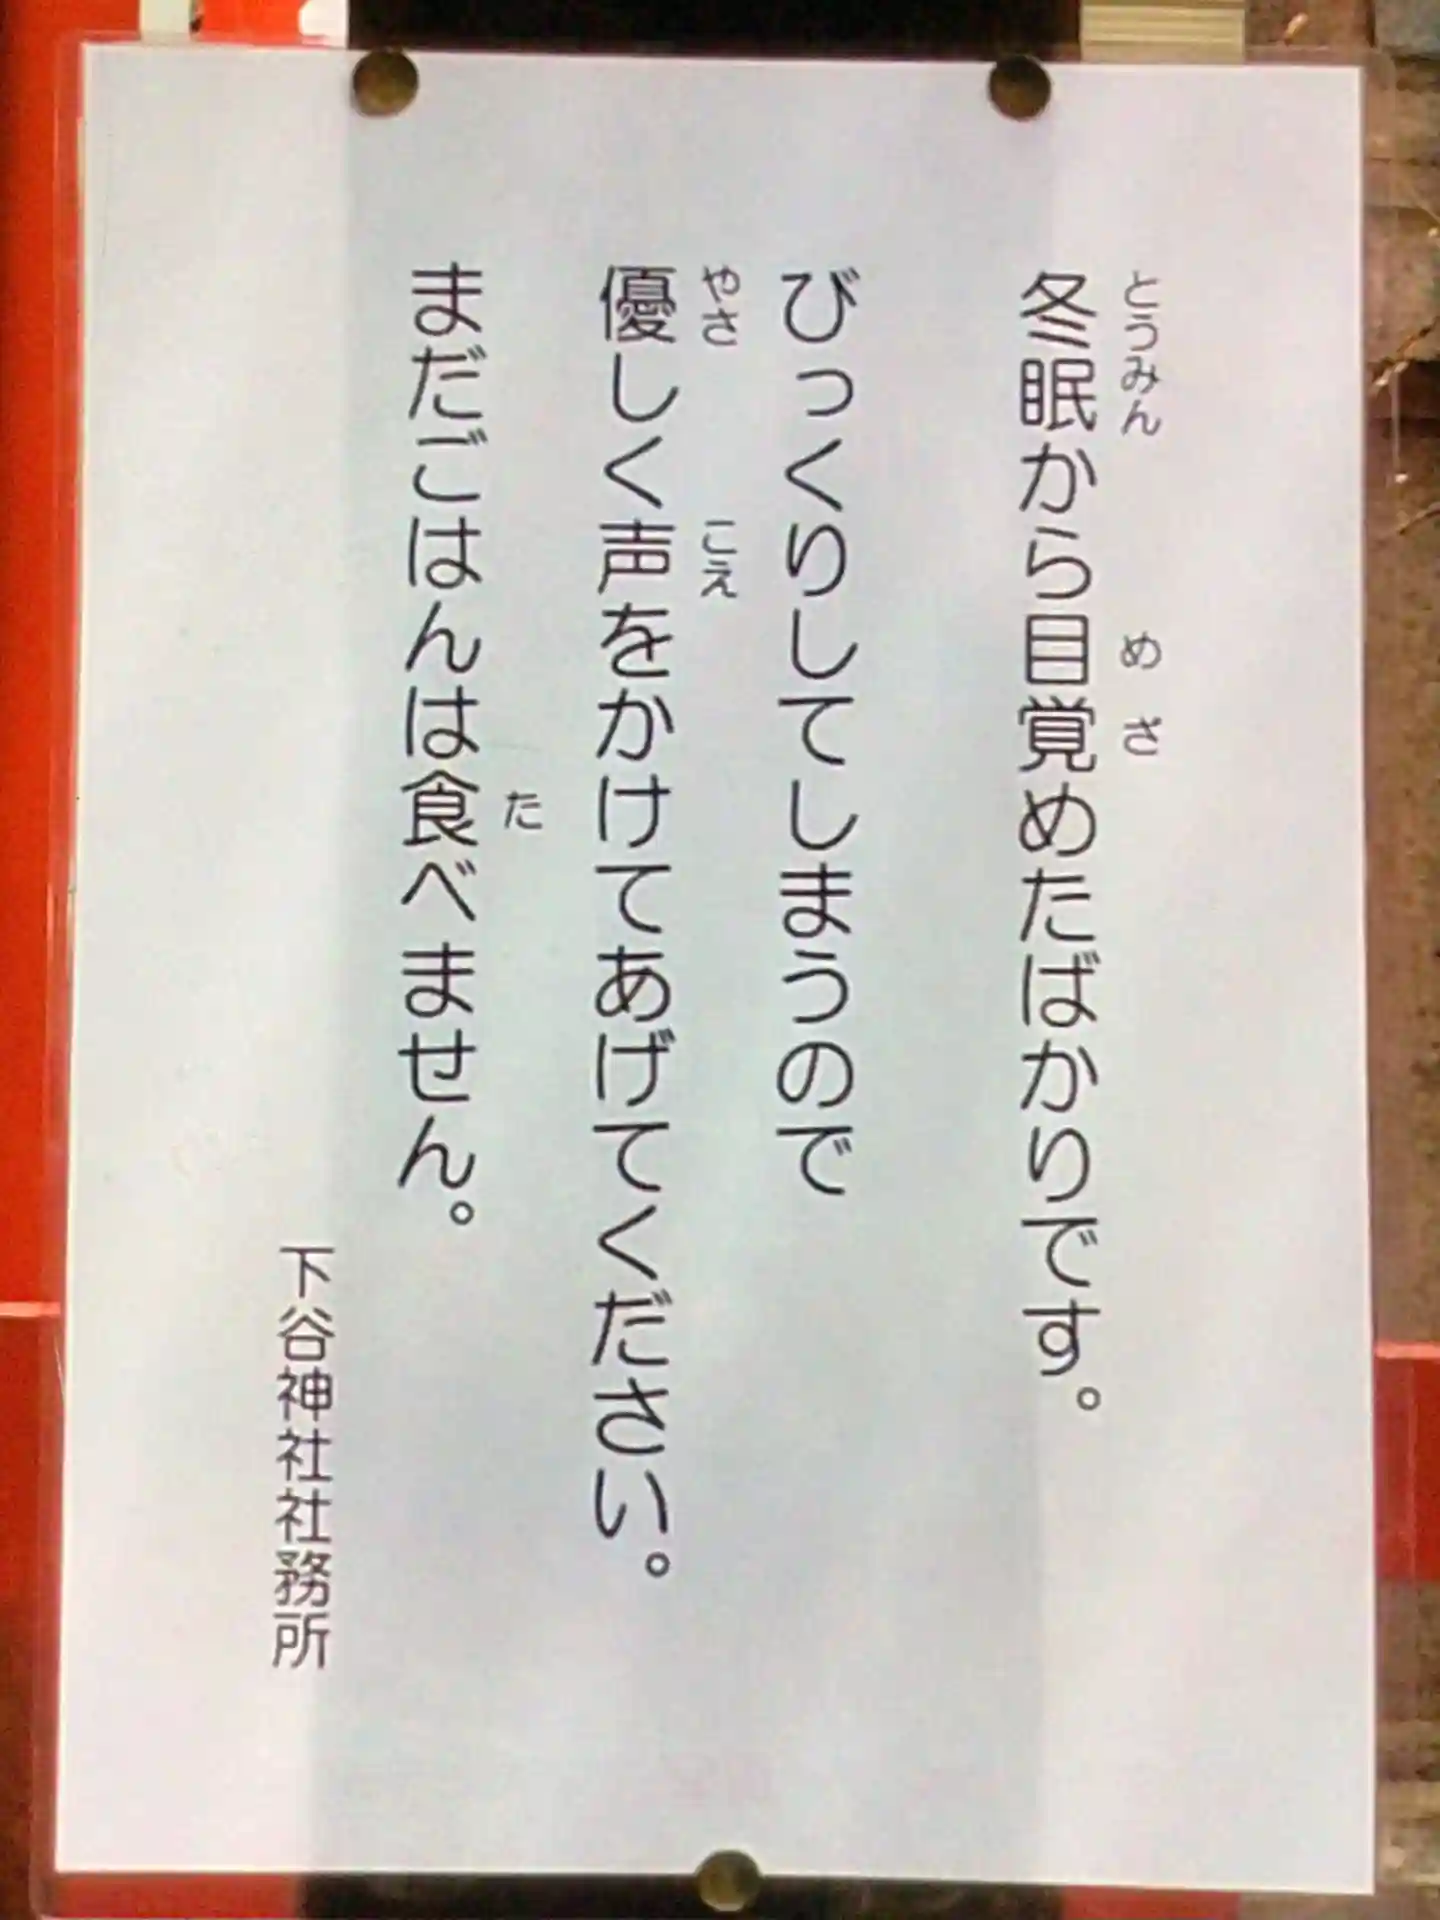 冬眠から目覚めたばかりです。
びっくりしてしまうので
優しく声をかけてあげてください。
まだごはんは食べません。
下谷神社社務所